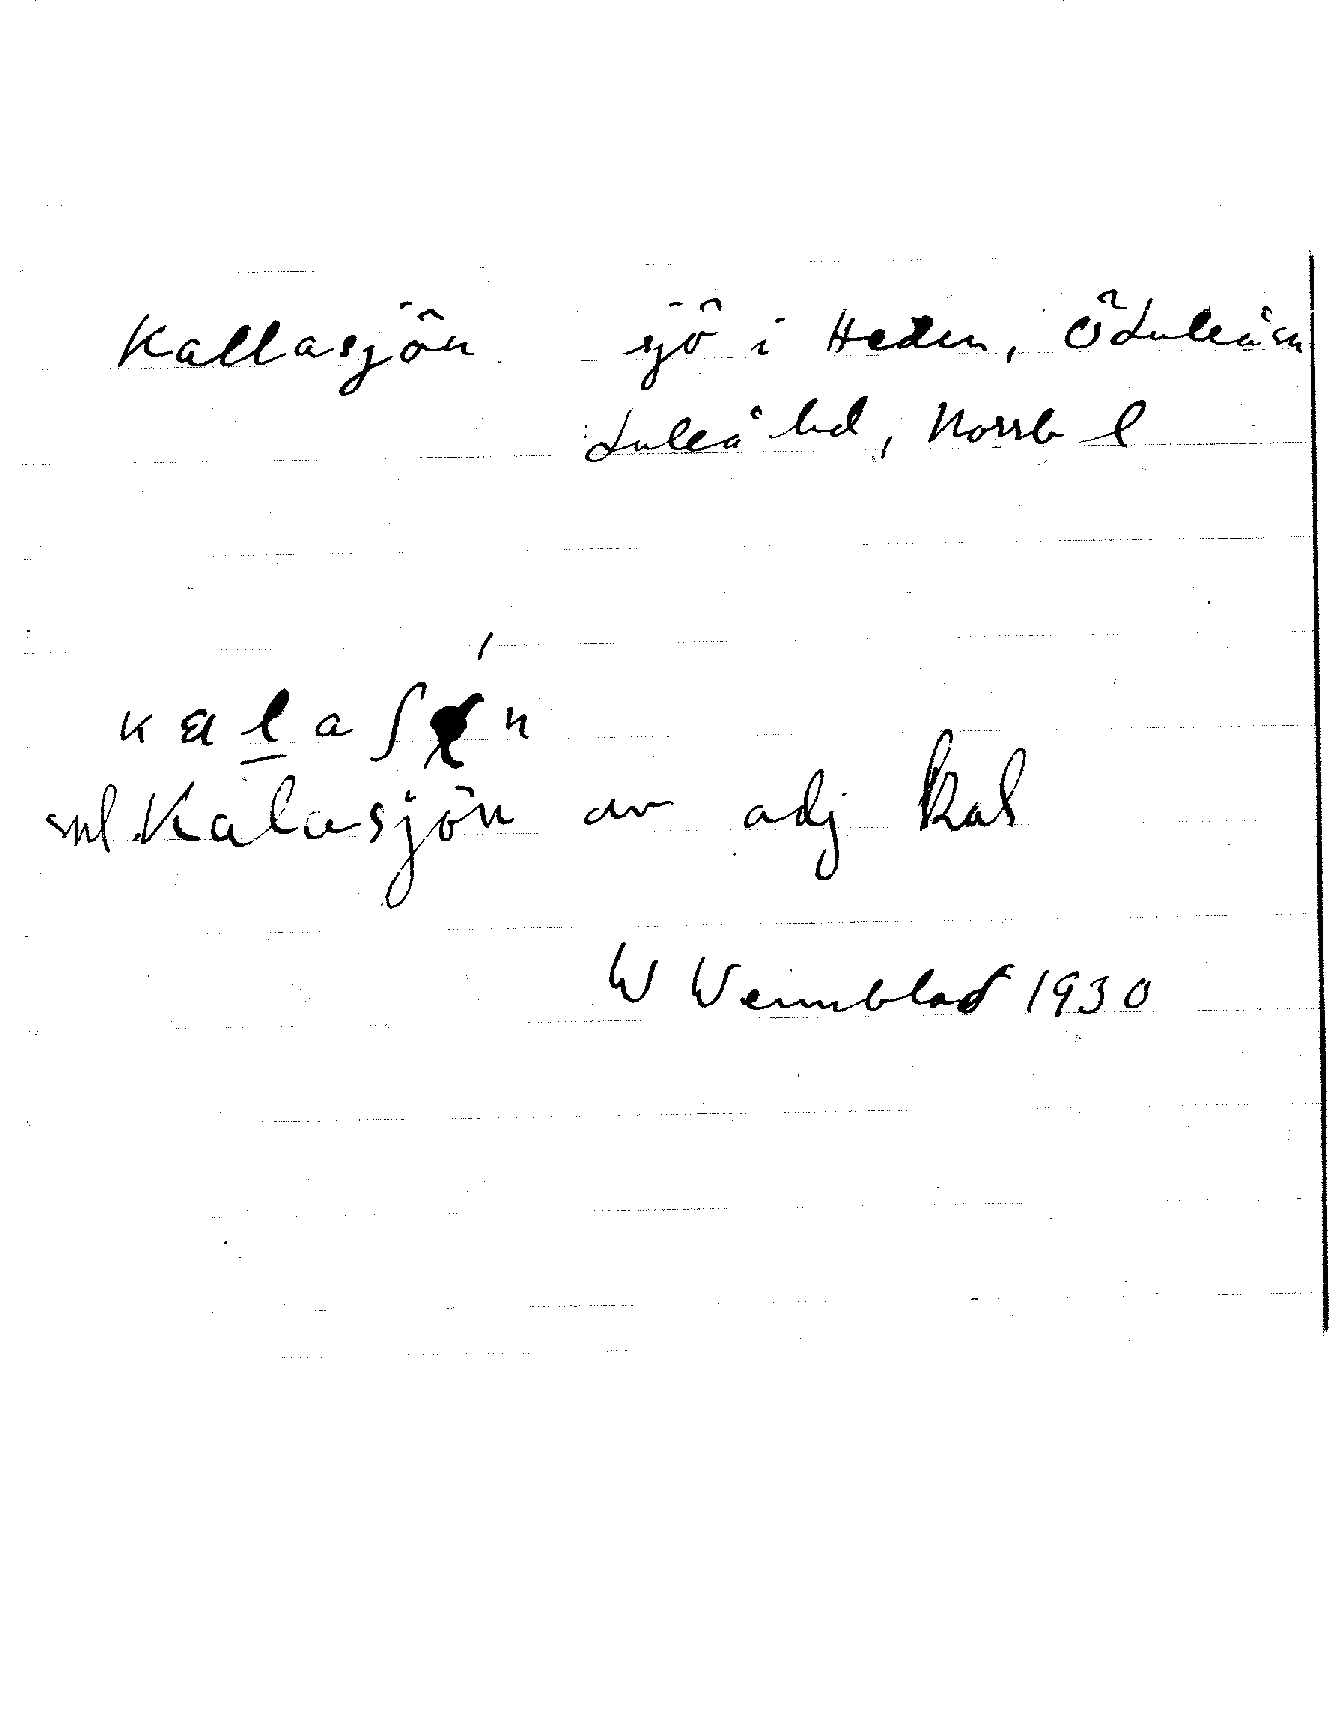 Kallasjön sjö i Heden, ÖLuleå sn
Luleå hd, Norrb l
sml Kalasjön av adj kal
W Wennblad 1930